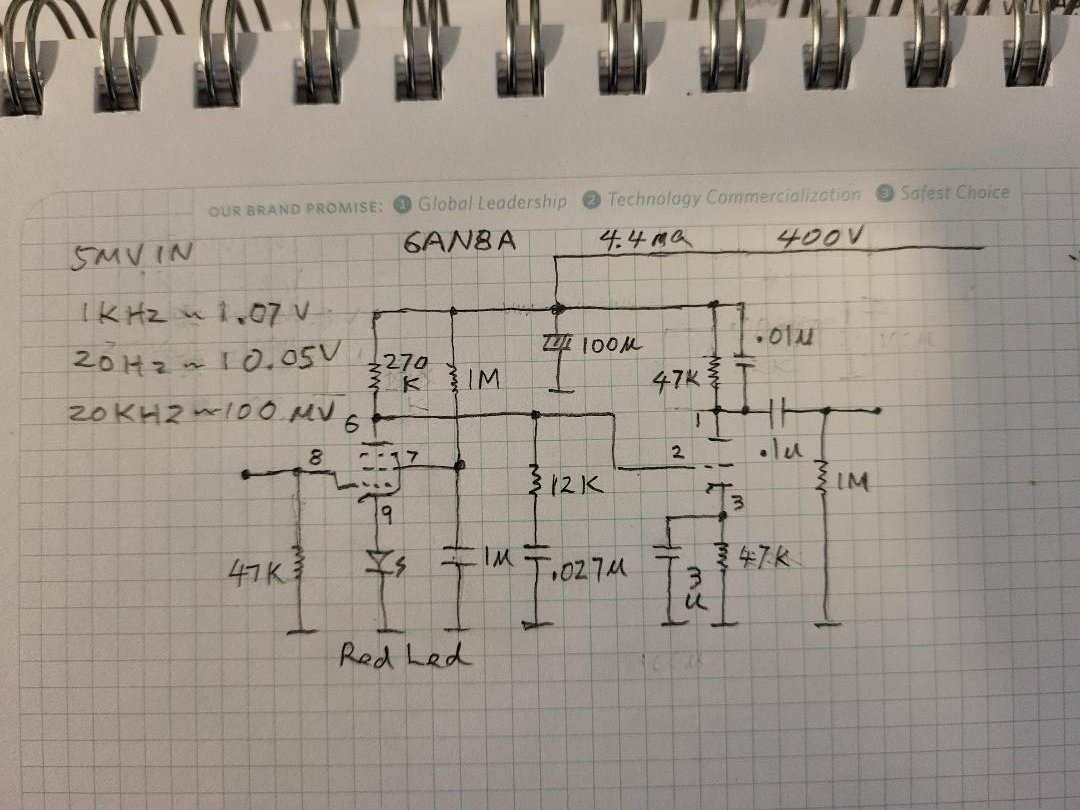 OUR BRAND PROMISE: 1 Global Leadership 2 Technology Commercialization 3 Safest Choice
5MV IN 6AN8A 4.4ma 400V
1KHz ~ 1.07V
20Hz ~ 10.05V
20KHZ ~ 100 MV
270 K
1M
100µ
47K
.01µ
6
1
8
7
2
.1µ
12K
1M
3
9
47K
1M
.027µ
3 u
47K
Red Led